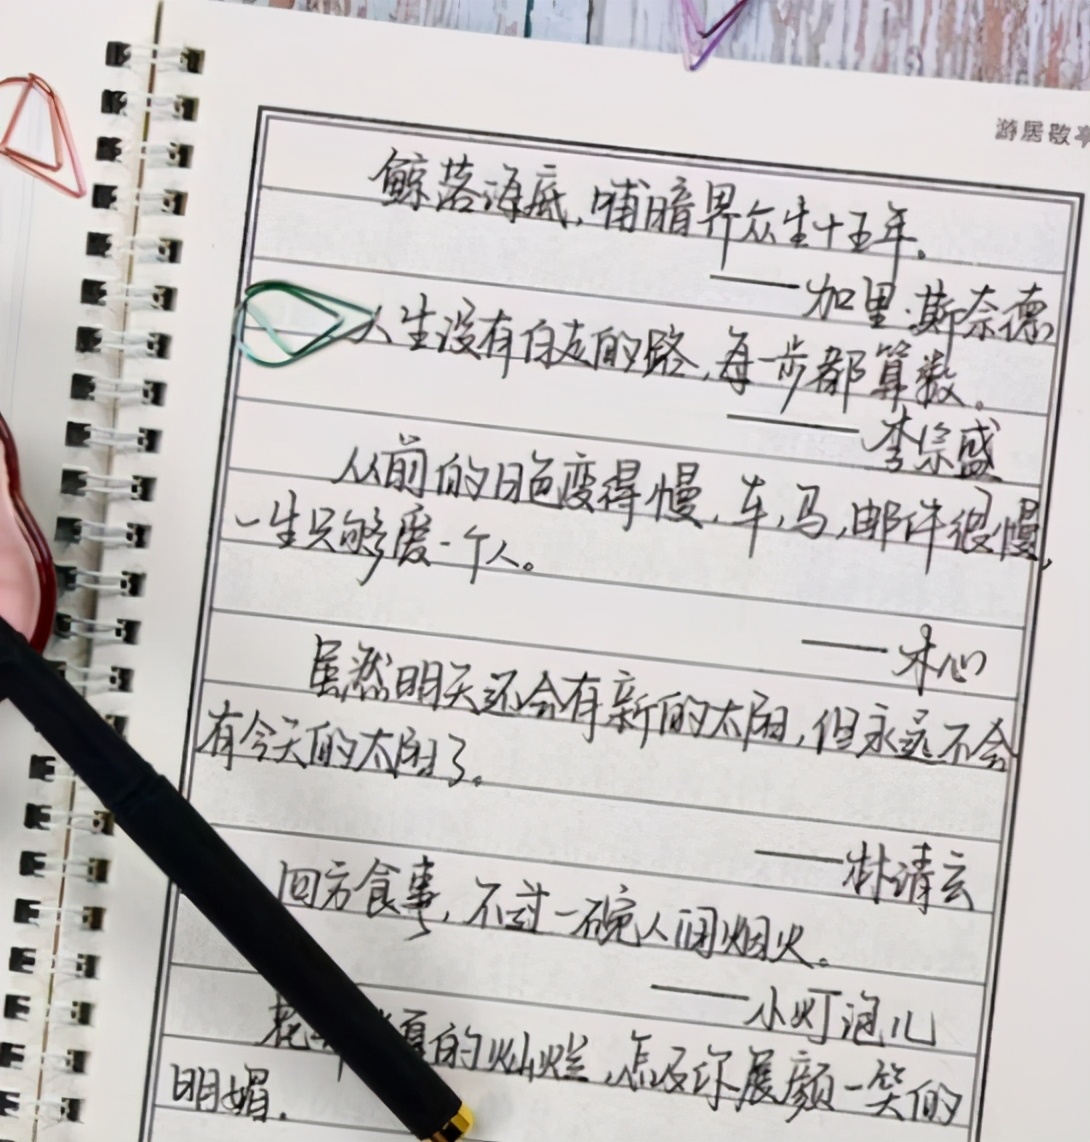 游居敬亭
鲸落海底，哺暗界众生十五年。
——加里·斯奈德
人生没有白走的路，每一步都算数。
——李宗盛
从前的日色变得慢，车，马，邮件很慢，
一生只够爱一个人。
——木心
虽然明天还会有新的太阳，但永远不会
有今天的太阳了。
——林清玄
四方食事，不过一碗人间烟火。
——小灯泡儿
花 夏的灿烂，怎及你展颜一笑的
明媚．